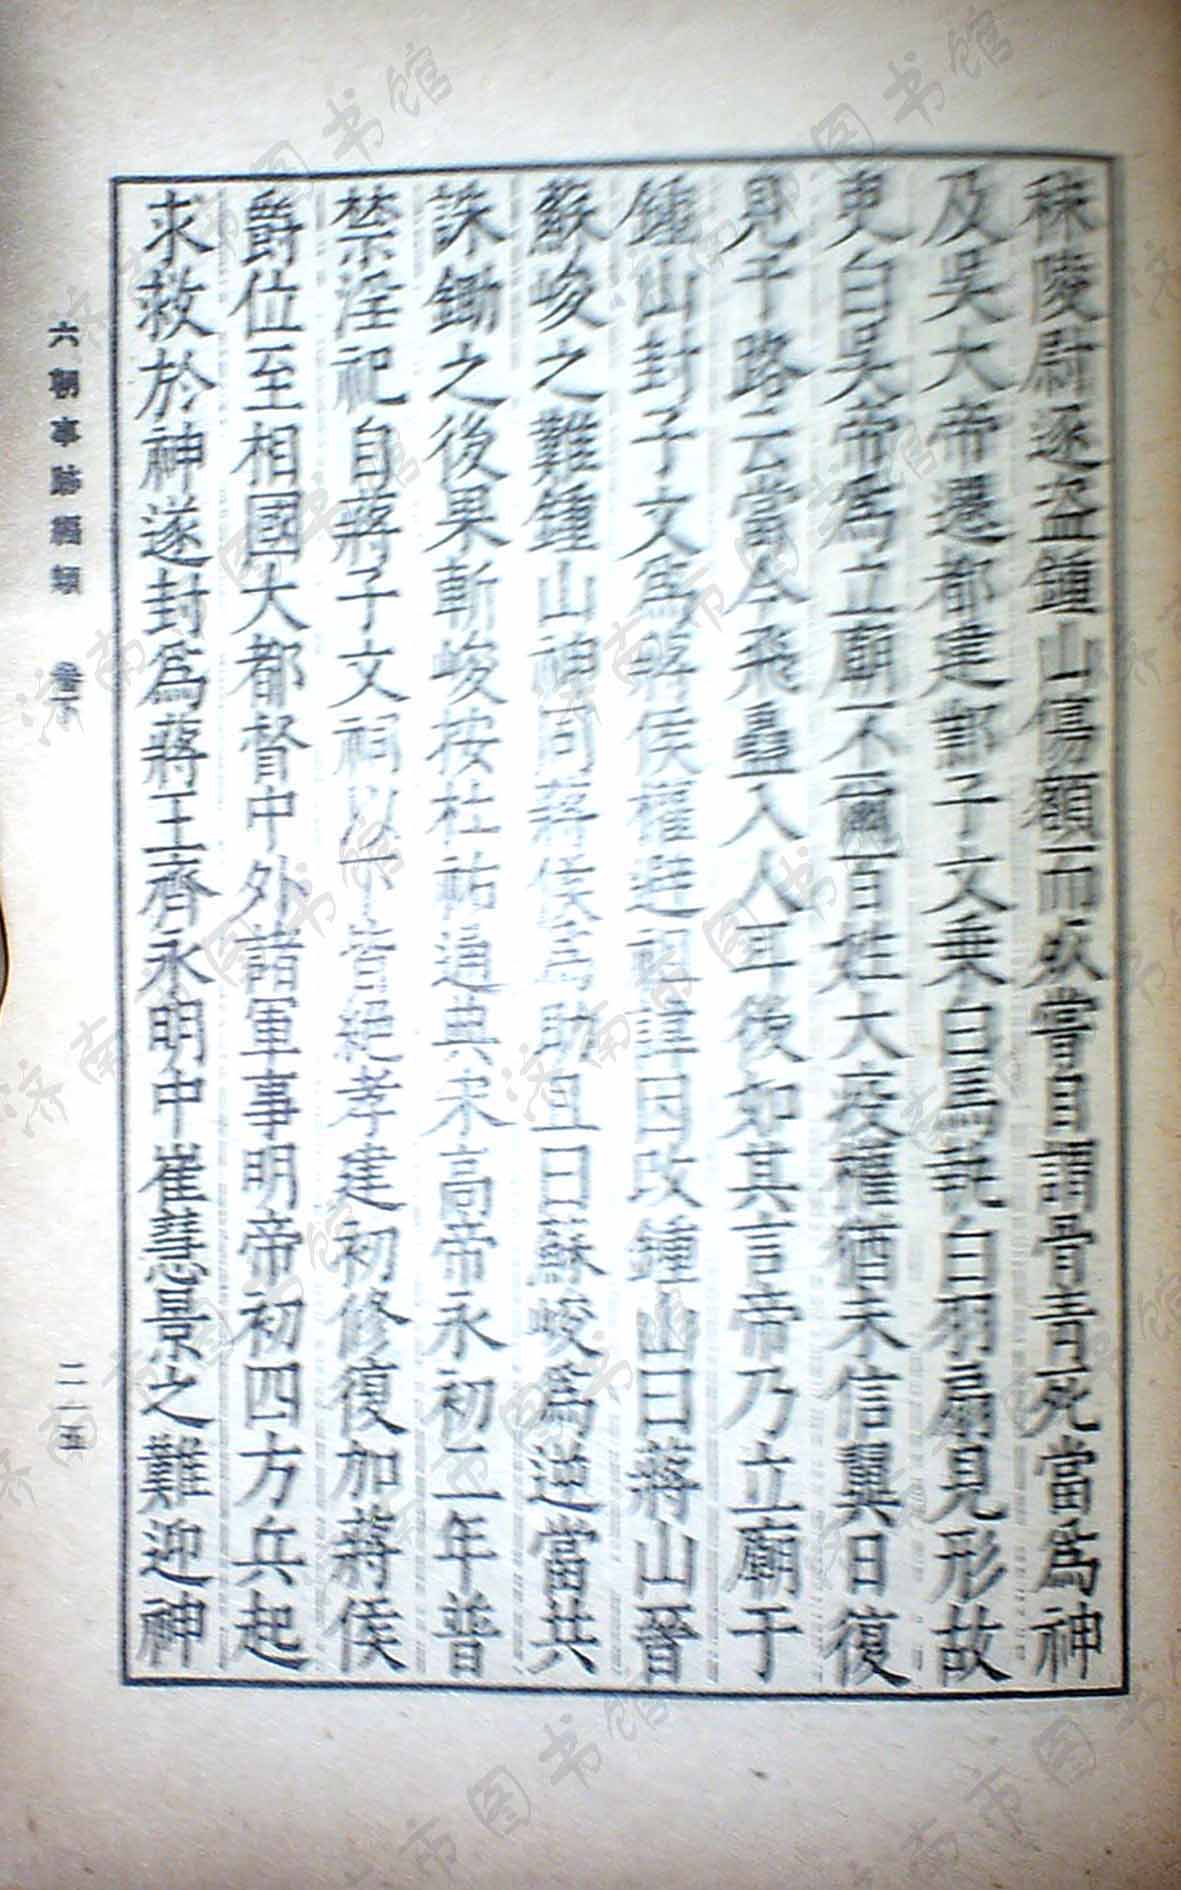 秣陵尉逐盗鍾山傷額而死嘗自謂骨青死當爲神
及吳大帝遷都建鄴子文乗白馬執白羽扇見形故
吏白吳帝爲立廟不爾百姓大疫權猶未信翼日復
見于路云當令飛蟲入人耳後如其言帝乃立廟于
鍾山封子文爲蔣侯權避祖諱因改鍾山曰蔣山晉
蘇峻之難鍾山神同蔣侯爲助且曰蘇峻爲逆當共
誅鋤之後果斬峻按杜祐通典宋高帝永初二年普
禁淫祀自蔣子文祠以下皆絕孝建初修復加蔣侯
爵位至相國大都督中外諸軍事明帝初四方兵起
求救於神遂封爲蔣王齊永明中崔慧景之難迎神
六朝事跡編類 卷下 二一五
济南市图书馆